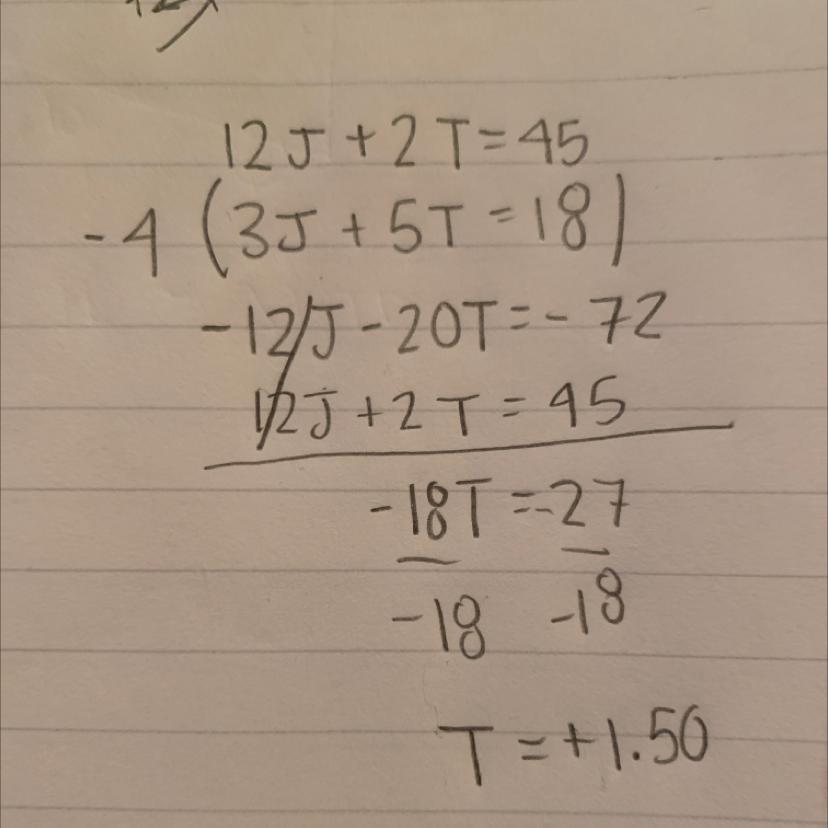 12J + 2T = 45
-4 (3J + 5T = 18)
-12J - 20T = - 72
12J + 2T = 45
-18T = -27
-18 -18
T = +1.50